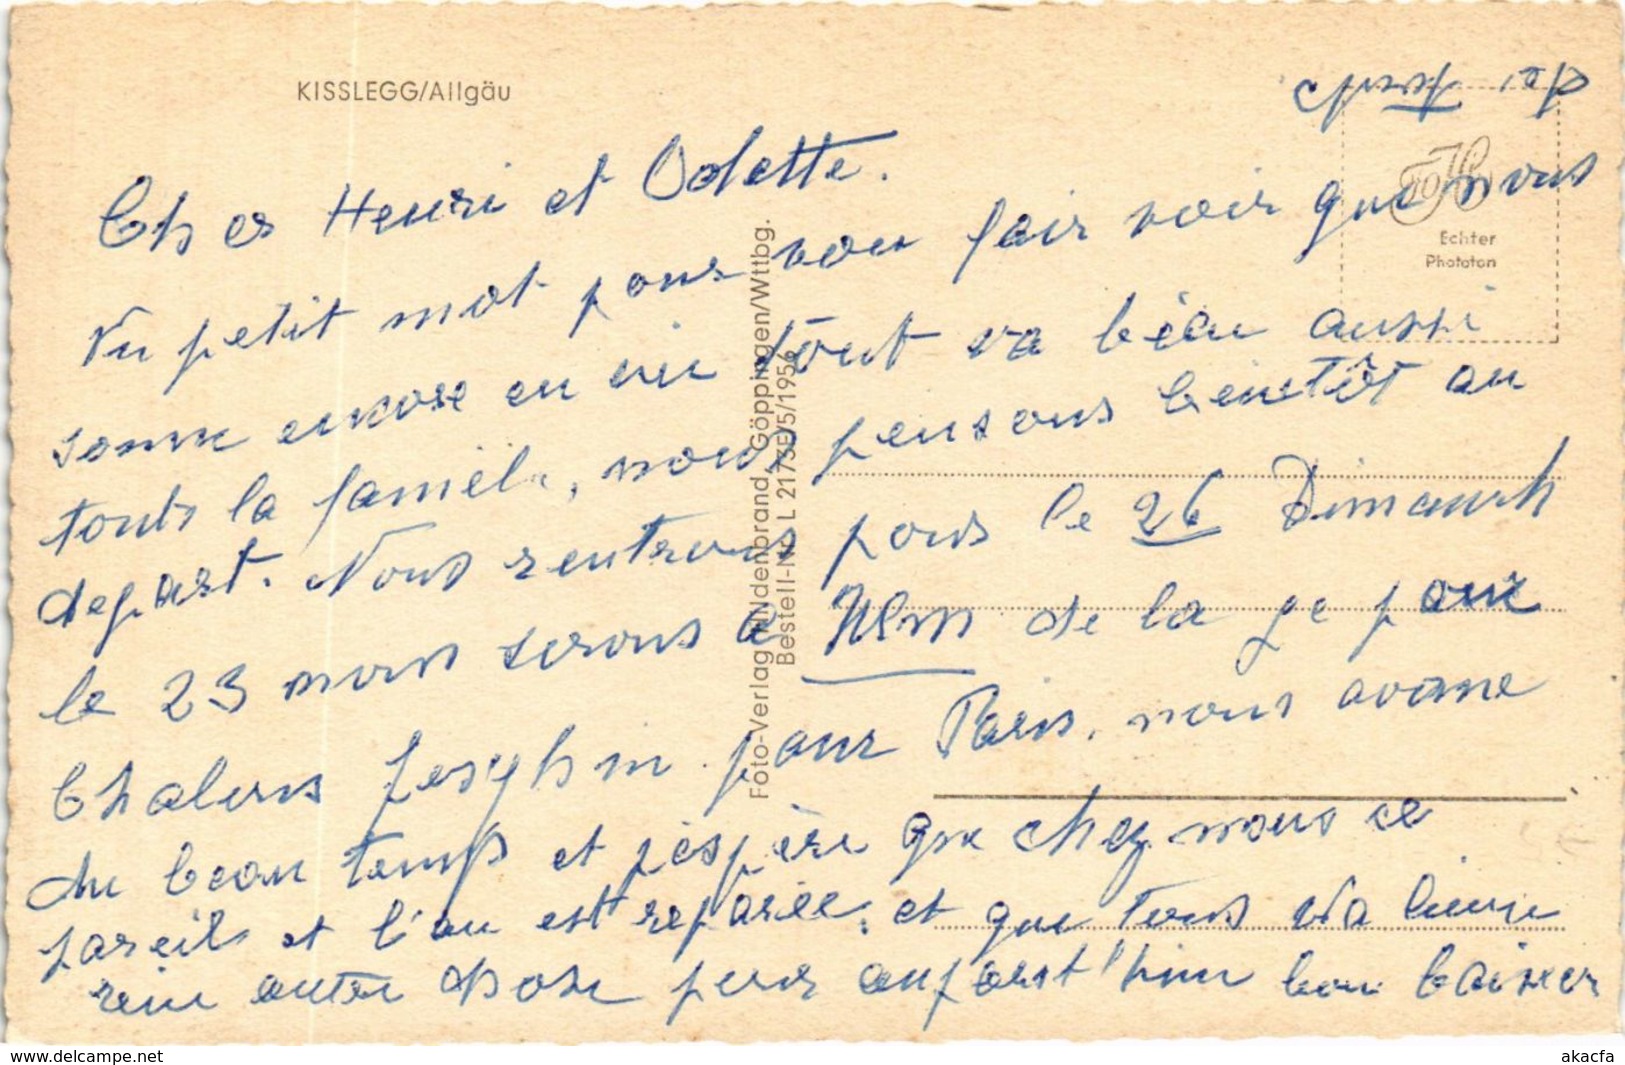 KISSLEGG/Allgäu
Chers Henri et Odette.
Un petit mot pour vou fair voir que nous
somme encore en vie tout va bien aussi
toute la famille, nous pensons bientôt au
depart. Nous rentrons pour le 26 Dimanch
le 23 nous serons a Ulm de la pour
Chalons pour Paris. nous avone
du beau temps et j'espère que chez nous ce
pareil et l'au est reparée. et que tous va bien
rien autre chose pour baiser
Echter
Phototon
Foto-Verlag Hildenbrand, Göppingen/Wttbg.
Bestell-Nr. L 2173E/5/1956
www.delcampe.net
akacfa